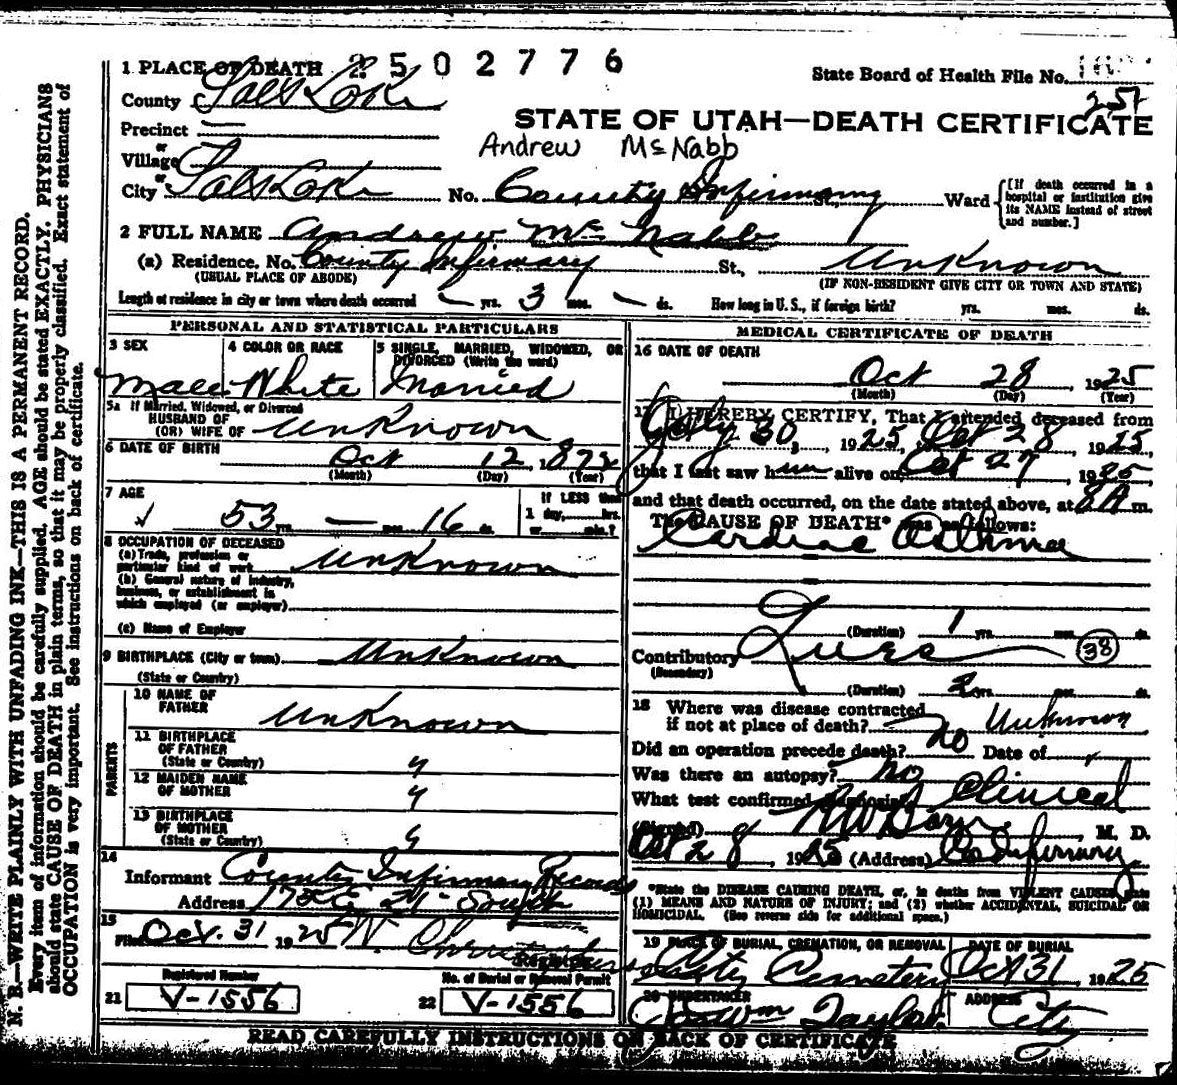 1 PLACE OF DEATH 2502776
State Board of Health File No.
County Salt Lake
STATE OF UTAH—DEATH CERTIFICATE
Precinct
Andrew McNabb
or
Village
or
City Salt Lake No. County Infirmary St., Ward [If death occurred in a hospital or institution give its NAME instead of street and number.]
2 FULL NAME Andrew McNabb
(a) Residence, No. County Infirmary St., Unknown
(USUAL PLACE OF ABODE) (IF NON-RESIDENT GIVE CITY OR TOWN AND STATE)
Length of residence in city or town where death occurred — yrs. 3 mos. — ds. How long in U. S., if foreign birth? yrs. mos. ds.
PERSONAL AND STATISTICAL PARTICULARS
3 SEX 4 COLOR OR RACE 5 SINGLE, MARRIED, WIDOWED, OR
DIVORCED (Write the word)
Male White Married
5a If Married, Widowed, or Divorced
HUSBAND OF
(OR) WIFE OF Unknown
6 DATE OF BIRTH Oct 12, 1872
(Month) (Day) (Year)
7 AGE If LESS than
53 yrs. — mos. 16 ds. 1 day, hrs.
or min.?
8 OCCUPATION OF DECEASED
(a) Trade, profession or
particular kind of work Unknown
(b) General nature of industry,
business, or establishment in
which employed (or employer)
(c) Name of Employer
9 BIRTHPLACE (City or town) Unknown
(State or Country)
PARENTS
10 NAME OF
FATHER Unknown
11 BIRTHPLACE
OF FATHER
(State or Country) "
12 MAIDEN NAME
OF MOTHER "
13 BIRTHPLACE
OF MOTHER
(State or Country) "
14
Informant County Infirmary Records
Address South
15
Filed Oct. 31 1925
Registrar
Registered Number No. of Burial or Removal Permit
21 V-1556 22 V-1556
MEDICAL CERTIFICATE OF DEATH
16 DATE OF DEATH
Oct 28, 1925
(Month) (Day) (Year)
17 I HEREBY CERTIFY, That I attended deceased from
July 30, 1925, Oct 28, 1925,
that I last saw him alive on Oct 27, 1925
and that death occurred, on the date stated above, at 8 A m.
The CAUSE OF DEATH* was as follows:
Cardiac Asthma
(Duration) 1 yrs. mos. ds.
Contributory Lues 38
(Secondary)
(Duration) 2 yrs. mos. ds.
18 Where was disease contracted
if not at place of death? Unknown
Did an operation precede death? no Date of
Was there an autopsy? no
What test confirmed diagnosis? Clinical
(Signed) M. D.
Oct 28, 1925 (Address) Co Infirmary
*State the DISEASE CAUSING DEATH, or, in deaths from VIOLENT CAUSES, state
(1) MEANS AND NATURE OF INJURY; and (2) whether ACCIDENTAL, SUICIDAL OR
HOMICIDAL. (See reverse side for additional space.)
19 PLACE OF BURIAL, CREMATION, OR REMOVAL DATE OF BURIAL
City Cemetery Oct 31 1925
20 UNDERTAKER ADDRESS
Jos Wm Taylor City
READ CAREFULLY INSTRUCTIONS ON BACK OF CERTIFICATE
N. B.—WRITE PLAINLY WITH UNFADING INK—THIS IS A PERMANENT RECORD.
Every item of information should be carefully supplied. AGE should be stated EXACTLY. PHYSICIANS
should state CAUSE OF DEATH in plain terms, so that it may be properly classified. Exact statement of
OCCUPATION is very important. See instructions on back of certificate.